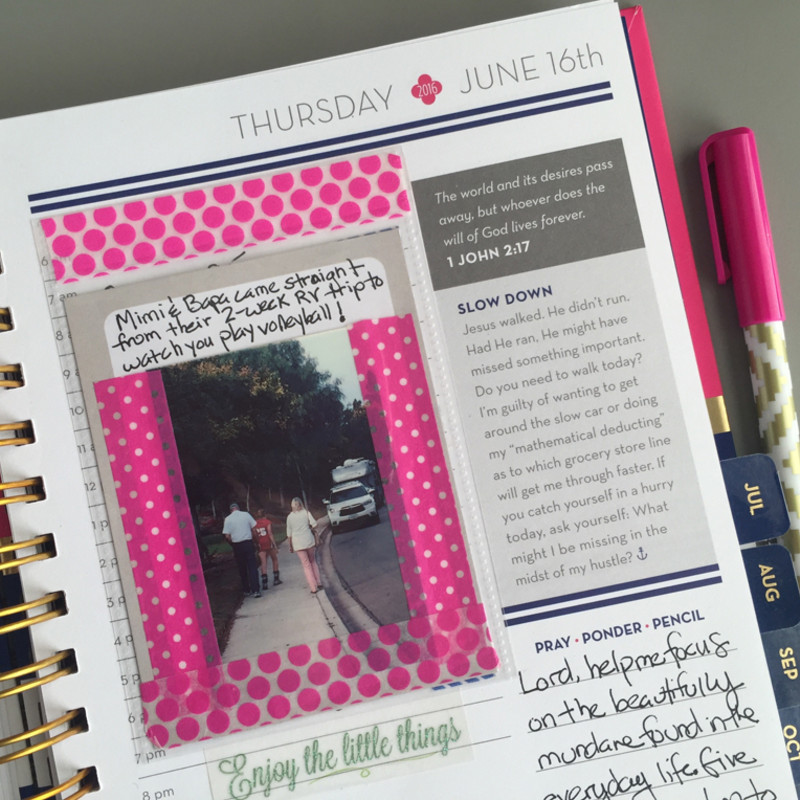 THURSDAY 2016 JUNE 16th
The world and its desires pass
away, but whoever does the
will of God lives forever.
1 JOHN 2:17
6
7 am
8
9
10
11
12
1 p
2 p
3 p
4 p
5
6
7 pm
8 pm
Mimi & Bapa came straight
from their 2-week RV trip to
watch you play volleyball!
Enjoy the little things
SLOW DOWN
Jesus walked. He didn't run.
Had He ran, He might have
missed something important.
Do you need to walk today?
I'm guilty of wanting to get
around the slow car or doing
my "mathematical deducting"
as to which grocery store line
will get me through faster. If
you catch yourself in a hurry
today, ask yourself: What
might I be missing in the
midst of my hustle?
PRAY • PONDER • PENCIL
Lord, help me focus
on the beautifully
mundane found in the
everyday life. Give
to
JUL
AUG
SEP
OCT